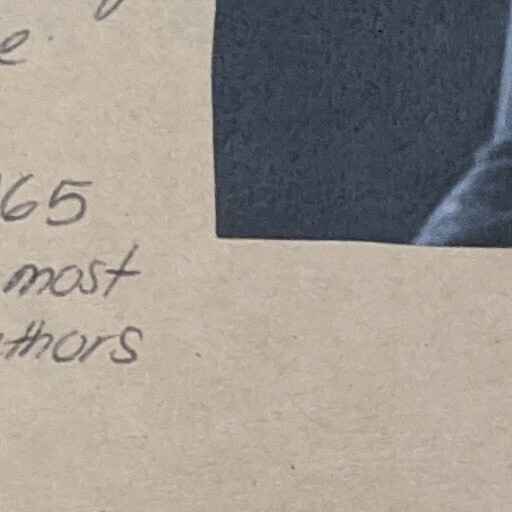 e
65
most
thors